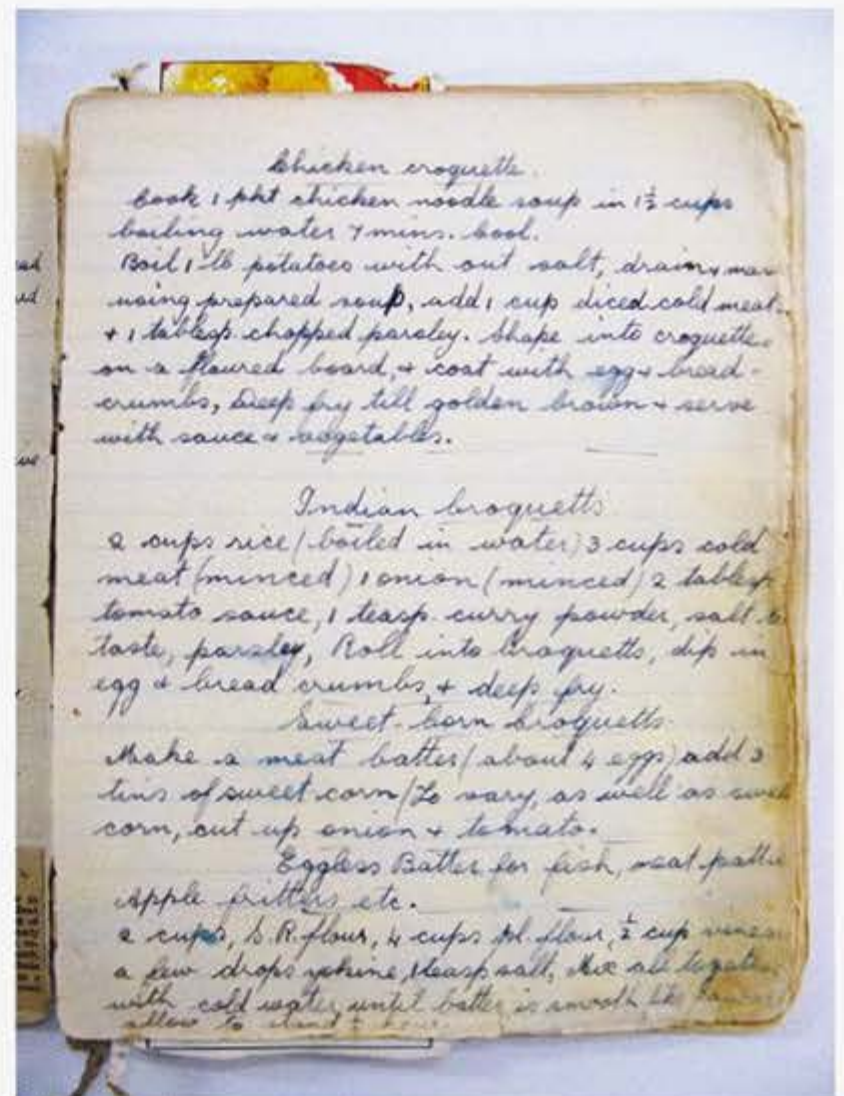 Chicken croquette.
Cook 1 pkt chicken noodle soup in 1½ cups
boiling water 7 mins. Cool.
Boil 1 lb potatoes with out salt, drain + mas
using prepared soup, add 1 cup diced cold meat
+ 1 tablesp. chopped parsley. Shape into croquette
on a floured board, + coat with egg + bread-
crumbs, Deep fry till golden brown + serve
with sauce + vegetables.
Indian Croquetts
2 cups rice (boiled in water) 3 cups cold
meat (minced) 1 onion (minced) 2 tablesp
tomato sauce, 1 teasp. curry powder, salt to
taste, parsley, Roll into Croquetts, dip in
egg + bread crumbs, + deep fry.
Sweet-Corn Croquetts
Make a meat batter (about 4 eggs) add 3
tins of sweet corn (To vary, as well as sweet
corn, cut up onion + tomato.
Eggless Batter for fish, meat pattie
Apple fritters, etc.
2 cups, S.R. flour, 4 cups pl. flour, ½ cup
a few drops 1 teasp salt, Mix all together
with cold water, until batter is smooth like
allow to stand ½ hour.